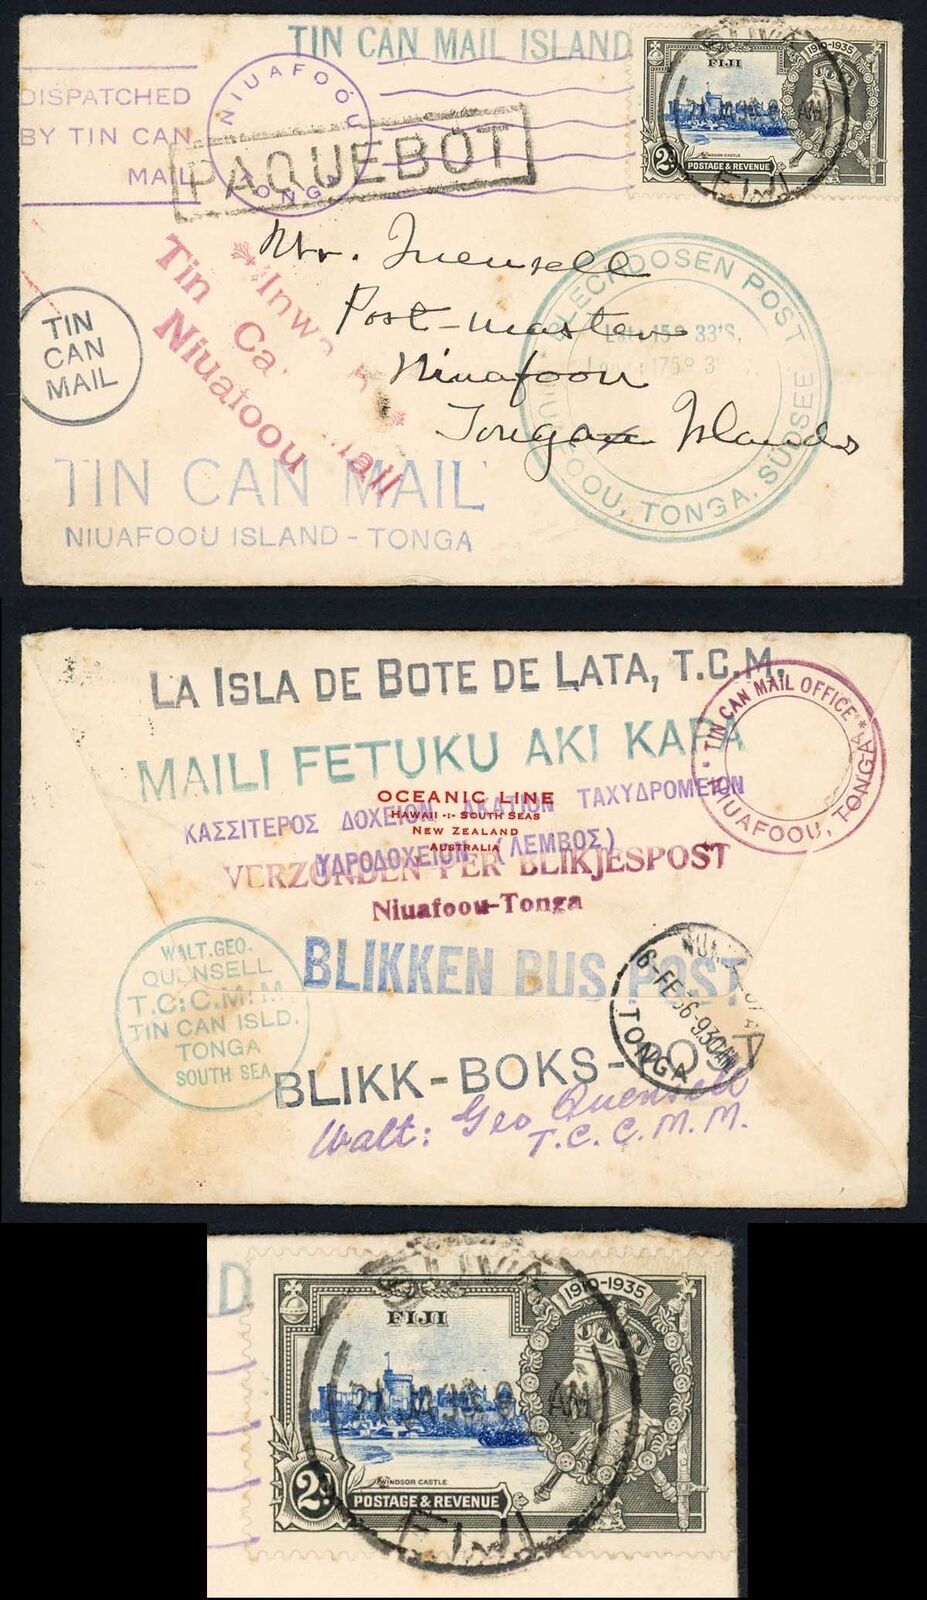 TIN CAN MAIL ISLAND
DISPATCHED
BY TIN CAN
MAIL
NIUAFOÓU
TONGA
PAQUEBOT
SUVA
FIJI
1910-1935
FIJI
WINDSOR CASTLE
2d
POSTAGE & REVENUE
Mr. Quensell
Post-master
Niuafoou
Tongan Islands
Tin Ca Mail
Niuafoou
TIN
CAN
MAIL
BLECHDOSEN POST
Lat. 15° 33'S,
OOU, TONGA, SUDSEE
TIN CAN MAIL
NIUAFOOU ISLAND - TONGA
LA ISLA DE BOTE DE LATA, T.C.M.
MAILI FETUKU AKI KAPA
* TIN CAN MAIL OFFICE **
NIUAFOOU, TONGA
OCEANIC LINE
HAWAII -:- SOUTH SEAS
NEW ZEALAND
AUSTRALIA
ΚΑΣΣΙΤΕΡΟΣ ΔΟΧΕΙΟΝ ΑΚΑΤΙΟΝ ΤΑΧΥΔΡΟΜΕΙΟΝ
ΥΔΡΟΔΟΧΕΙΟΝ (ΛΕΜΒΟΣ)
VERZONDEN PER BLIKJESPOST
Niuafoou-Tonga
BLIKKEN BUS POST
WALT. GEO.
QUENSELL
T.C.C.M.M.
TIN CAN ISLD.
TONGA
SOUTH SEA
6-FE 36-930AM
TONGA
BLIKK-BOKS-POST
Walt: Geo Quensell
T.C.C.M.M.
D
SUVA
FIJI
1910-1935
FIJI
AM
WINDSOR CASTLE
2d
POSTAGE & REVENUE